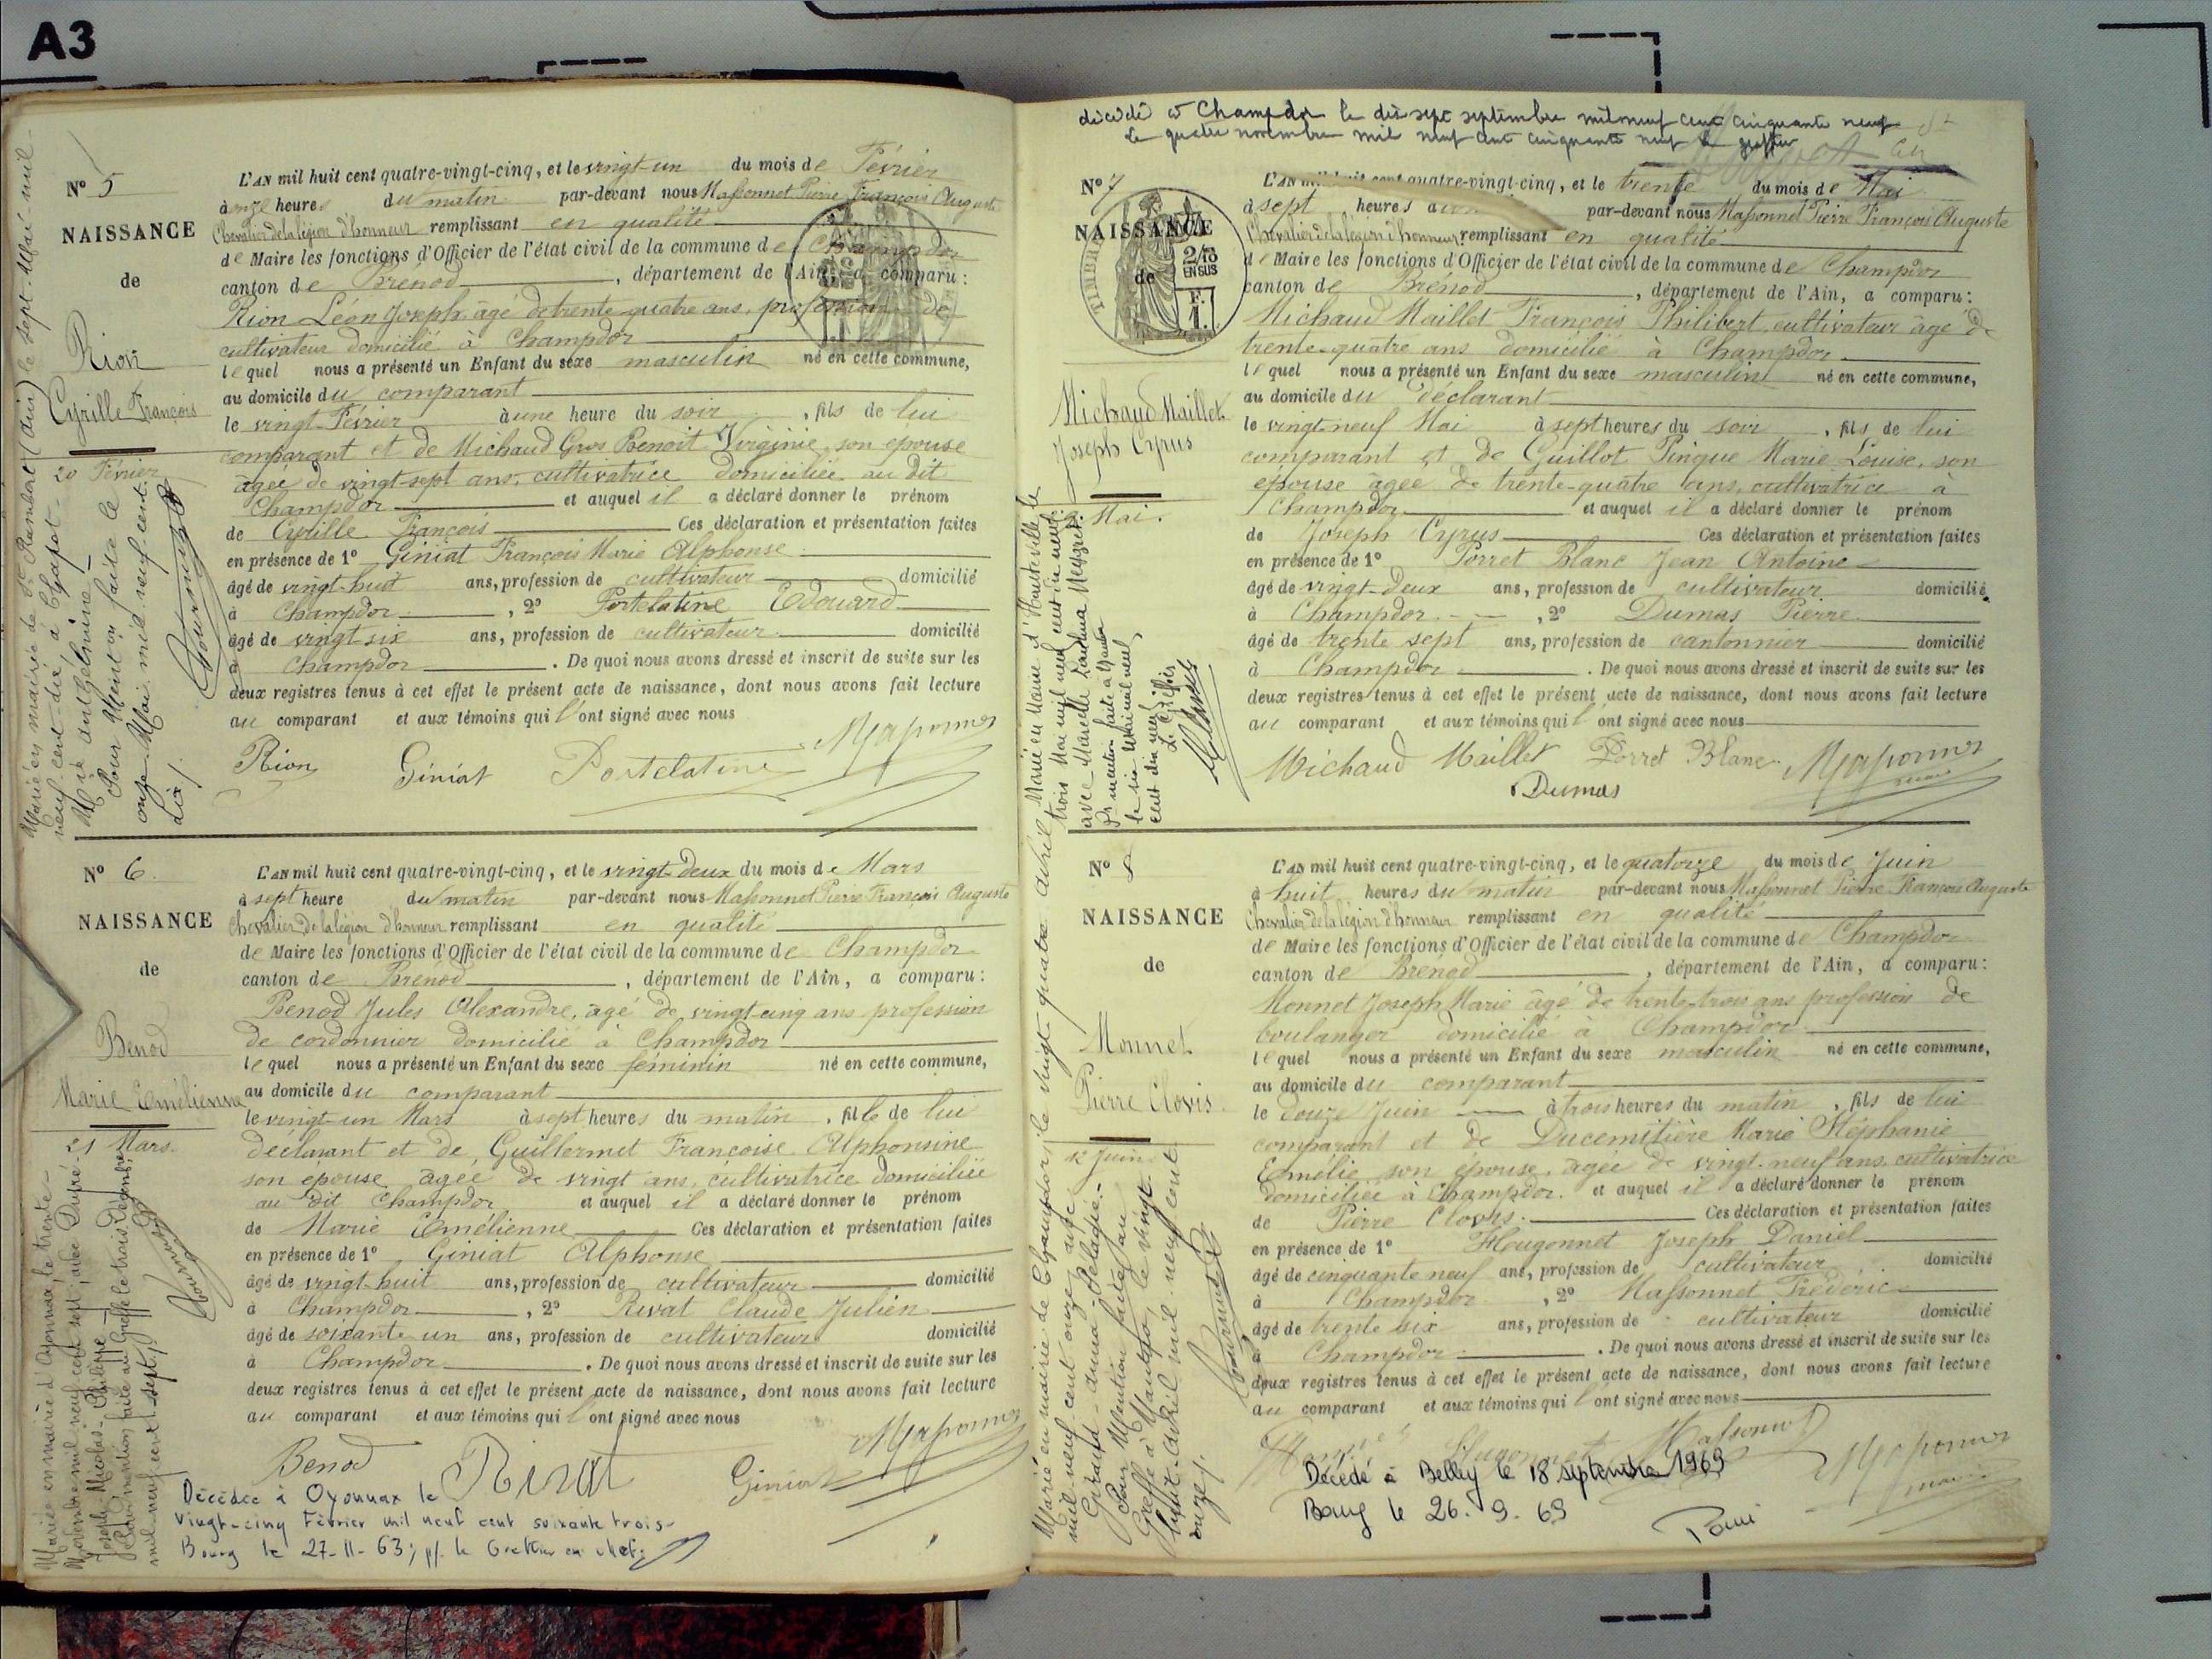 A3
N° 5
NAISSANCE
de
Rion
Cyrille François
20 Février
Marié en mairie de St Rambert (Ain) le sept Mai mil
neuf cent dix, à
Pour Mention faite le
onze Mai mil neuf cent
dix /.
L'AN mil huit cent quatre-vingt-cinq, et le vingt-un du mois de Février
à onze heures du matin par-devant nous Massonnet Pierre François Auguste
Chevalier de la légion d'honneur remplissant en qualité
de Maire les fonctions d'Officier de l'état civil de la commune de Champdor
canton de Brénod, département de l'Ain, a comparu :
Rion Léon Joseph, âgé de trente quatre ans, profession de
cultivateur domicilié à Champdor
lequel nous a présenté un Enfant du sexe masculin né en cette commune,
au domicile du comparant
le vingt Février à une heure du soir, fils de lui
comparant et de Michaud Gros Benoit Virginie, son épouse
âgée de vingt-sept ans, cultivatrice domiciliée au dit
Champdor et auquel il a déclaré donner le prénom
de Cyrille François Ces déclaration et présentation faites
en présence de 1° Géniat François Marie Alphonse
âgé de vingt-huit ans, profession de cultivateur domicilié
à Champdor, 2° Portelatine Edouard
âgé de vingt six ans, profession de cultivateur domicilié
à Champdor. De quoi nous avons dressé et inscrit de suite sur les
deux registres tenus à cet effet le présent acte de naissance, dont nous avons fait lecture
au comparant et aux témoins qui l'ont signé avec nous
Rion Géniat Portelatine Massonnet
N° 6
NAISSANCE
de
Benod
Marie Emélienne
21 Mars.
Mariée en mairie d'Oyonnax, le trente
Novembre mil neuf cent sept, avec Dupré
Joseph Nicolas Philippe
Pour mention faite au Greffe le trois Décembre
mil neuf cent sept /.
L'AN mil huit cent quatre-vingt-cinq, et le vingt-deux du mois de Mars
à sept heure du matin par-devant nous Massonnet Pierre François Auguste
Chevalier de la légion d'honneur remplissant en qualité
de Maire les fonctions d'Officier de l'état civil de la commune de Champdor
canton de Brénod, département de l'Ain, a comparu :
Benod Jules Alexandre, âgé de vingt-cinq ans profession
de cordonnier domicilié à Champdor
lequel nous a présenté un Enfant du sexe féminin né en cette commune,
au domicile du comparant
le vingt-un Mars à sept heures du matin, fille de lui
déclarant et de Guillermet Françoise Alphonsine
son épouse âgée de vingt ans, cultivatrice domiciliée
au dit Champdor et auquel il a déclaré donner le prénom
de Marie Emélienne Ces déclaration et présentation faites
en présence de 1° Géniat Alphonse
âgé de vingt-huit ans, profession de cultivateur domicilié
à Champdor, 2° Rivat Claude Julien
âgé de soixante un ans, profession de cultivateur domicilié
à Champdor. De quoi nous avons dressé et inscrit de suite sur les
deux registres tenus à cet effet le présent acte de naissance, dont nous avons fait lecture
au comparant et aux témoins qui l'ont signé avec nous
Benod Rivat Géniat Massonnet
Décédée à Oyonnax le
vingt-cinq Février mil neuf cent soixante trois-
Bourg le 27-11-63; p/. le Greffier en chef:
décédé à Champdor le dix sept septembre mil neuf cent cinquante neuf
Le quatre novembre mil neuf cent cinquante neuf le greffier
N° 7
NAISSANCE
de
TIMBRE
2/10
EN SUS
F.
1.
Michaud Maillet
Joseph Cyrus
29 Mai.
Marié en Mairie d'Hauteville le
trois Mai mil neuf cent dix neuf
avec Marcelle
Pr mention faite à Nantua
le six Mai mil neuf
cent dix neuf
Le Greffier
L'AN mil huit cent quatre-vingt-cinq, et le trente du mois de Mai
à sept heures par-devant nous Massonnet Pierre François Auguste
Chevalier de la légion d'honneur, remplissant en qualité
de Maire les fonctions d'Officier de l'état civil de la commune de Champdor
canton de Brénod, département de l'Ain, a comparu :
Michaud Maillet François Philibert, cultivateur âgé de
trente-quatre ans domicilié à Champdor
lequel nous a présenté un Enfant du sexe masculin né en cette commune,
au domicile du déclarant
le vingt-neuf Mai à sept heures du soir, fils de lui
comparant et de Guillot Pingue Marie Louise, son
épouse âgée de trente-quatre ans, cultivatrice à
Champdor et auquel il a déclaré donner le prénom
de Joseph Cyrus Ces déclaration et présentation faites
en présence de 1° Porret Blanc Jean Antoine
âgé de vingt-deux ans, profession de cultivateur domicilié
à Champdor, 2° Dumas Pierre
âgé de trente sept ans, profession de cantonnier domicilié
à Champdor. De quoi nous avons dressé et inscrit de suite sur les
deux registres tenus à cet effet le présent acte de naissance, dont nous avons fait lecture
au comparant et aux témoins qui l'ont signé avec nous
Michaud Maillet Porret Blanc Massonnet
Dumas
N° 8
NAISSANCE
de
Monnet
Pierre Clovis.
12 Juin
Marié en mairie de Champdor, le vingt quatre avril
mil neuf cent onze, avec
Giraud Anna Pélagie.
Pour Mention faite au
Greffe à Nantua, le vingt
huit avril mil neuf cent
onze /.
L'AN mil huit cent quatre-vingt-cinq, et le quatorze du mois de Juin
à huit heures du matin par-devant nous Massonnet Pierre François Auguste
Chevalier de la légion d'honneur remplissant en qualité
de Maire les fonctions d'Officier de l'état civil de la commune de Champdor
canton de Brénod, département de l'Ain, a comparu :
Monnet Joseph Marie âgé de trente-trois ans profession de
boulanger domicilié à Champdor
lequel nous a présenté un Enfant du sexe masculin né en cette commune,
au domicile du comparant
le douze Juin à trois heures du matin, fils de lui
comparant et de Ducemitière Marie Stéphanie
Emélie, son épouse, âgée de vingt-neuf ans, cultivatrice
domiciliée à Champdor. et auquel il a déclaré donner le prénom
de Pierre Clovis. Ces déclaration et présentation faites
en présence de 1° Hougonnet Joseph Daniel
âgé de cinquante neuf ans, profession de cultivateur domicilié
à Champdor, 2° Massonnet Fréderic
âgé de trente six ans, profession de cultivateur domicilié
à Champdor. De quoi nous avons dressé et inscrit de suite sur les
deux registres tenus à cet effet le présent acte de naissance, dont nous avons fait lecture
au comparant et aux témoins qui l'ont signé avec nous
Monnet Hugonnet Massonnet Massonnet
maire
Décédé à Belley le 18 septembre 1969
Bourg le 26. 9. 69